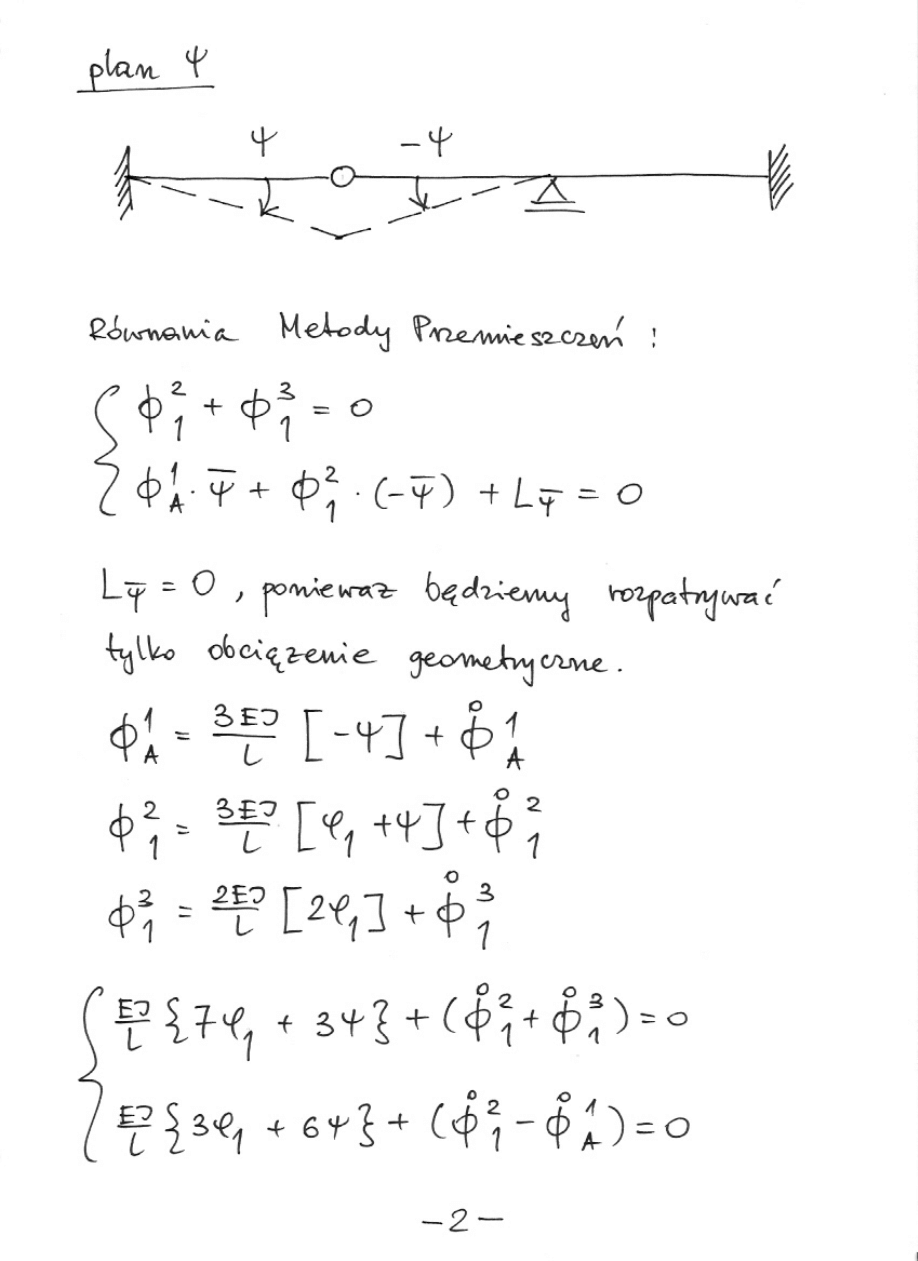 plan ψ
ψ -ψ
Równania Metody Przemieszczeń :
ϕ₁² + ϕ₁³ = 0
ϕ_A¹ · ψ̅ + ϕ₁² · (-ψ̅) + L_ψ̅ = 0
L_ψ̅ = 0 , ponieważ będziemy rozpatrywać
tylko obciążenie geometryczne.
ϕ_A¹ = 3EJ/L [-ψ] + ϕ̊_A¹
ϕ₁² = 3EJ/L [φ₁ + ψ] + ϕ̊₁²
ϕ₁³ = 2EJ/L [2φ₁] + ϕ̊₁³
EJ/L {7φ₁ + 3ψ} + (ϕ̊₁² + ϕ̊₁³) = 0
EJ/L {3φ₁ + 6ψ} + (ϕ̊₁² - ϕ̊_A¹) = 0
-2-